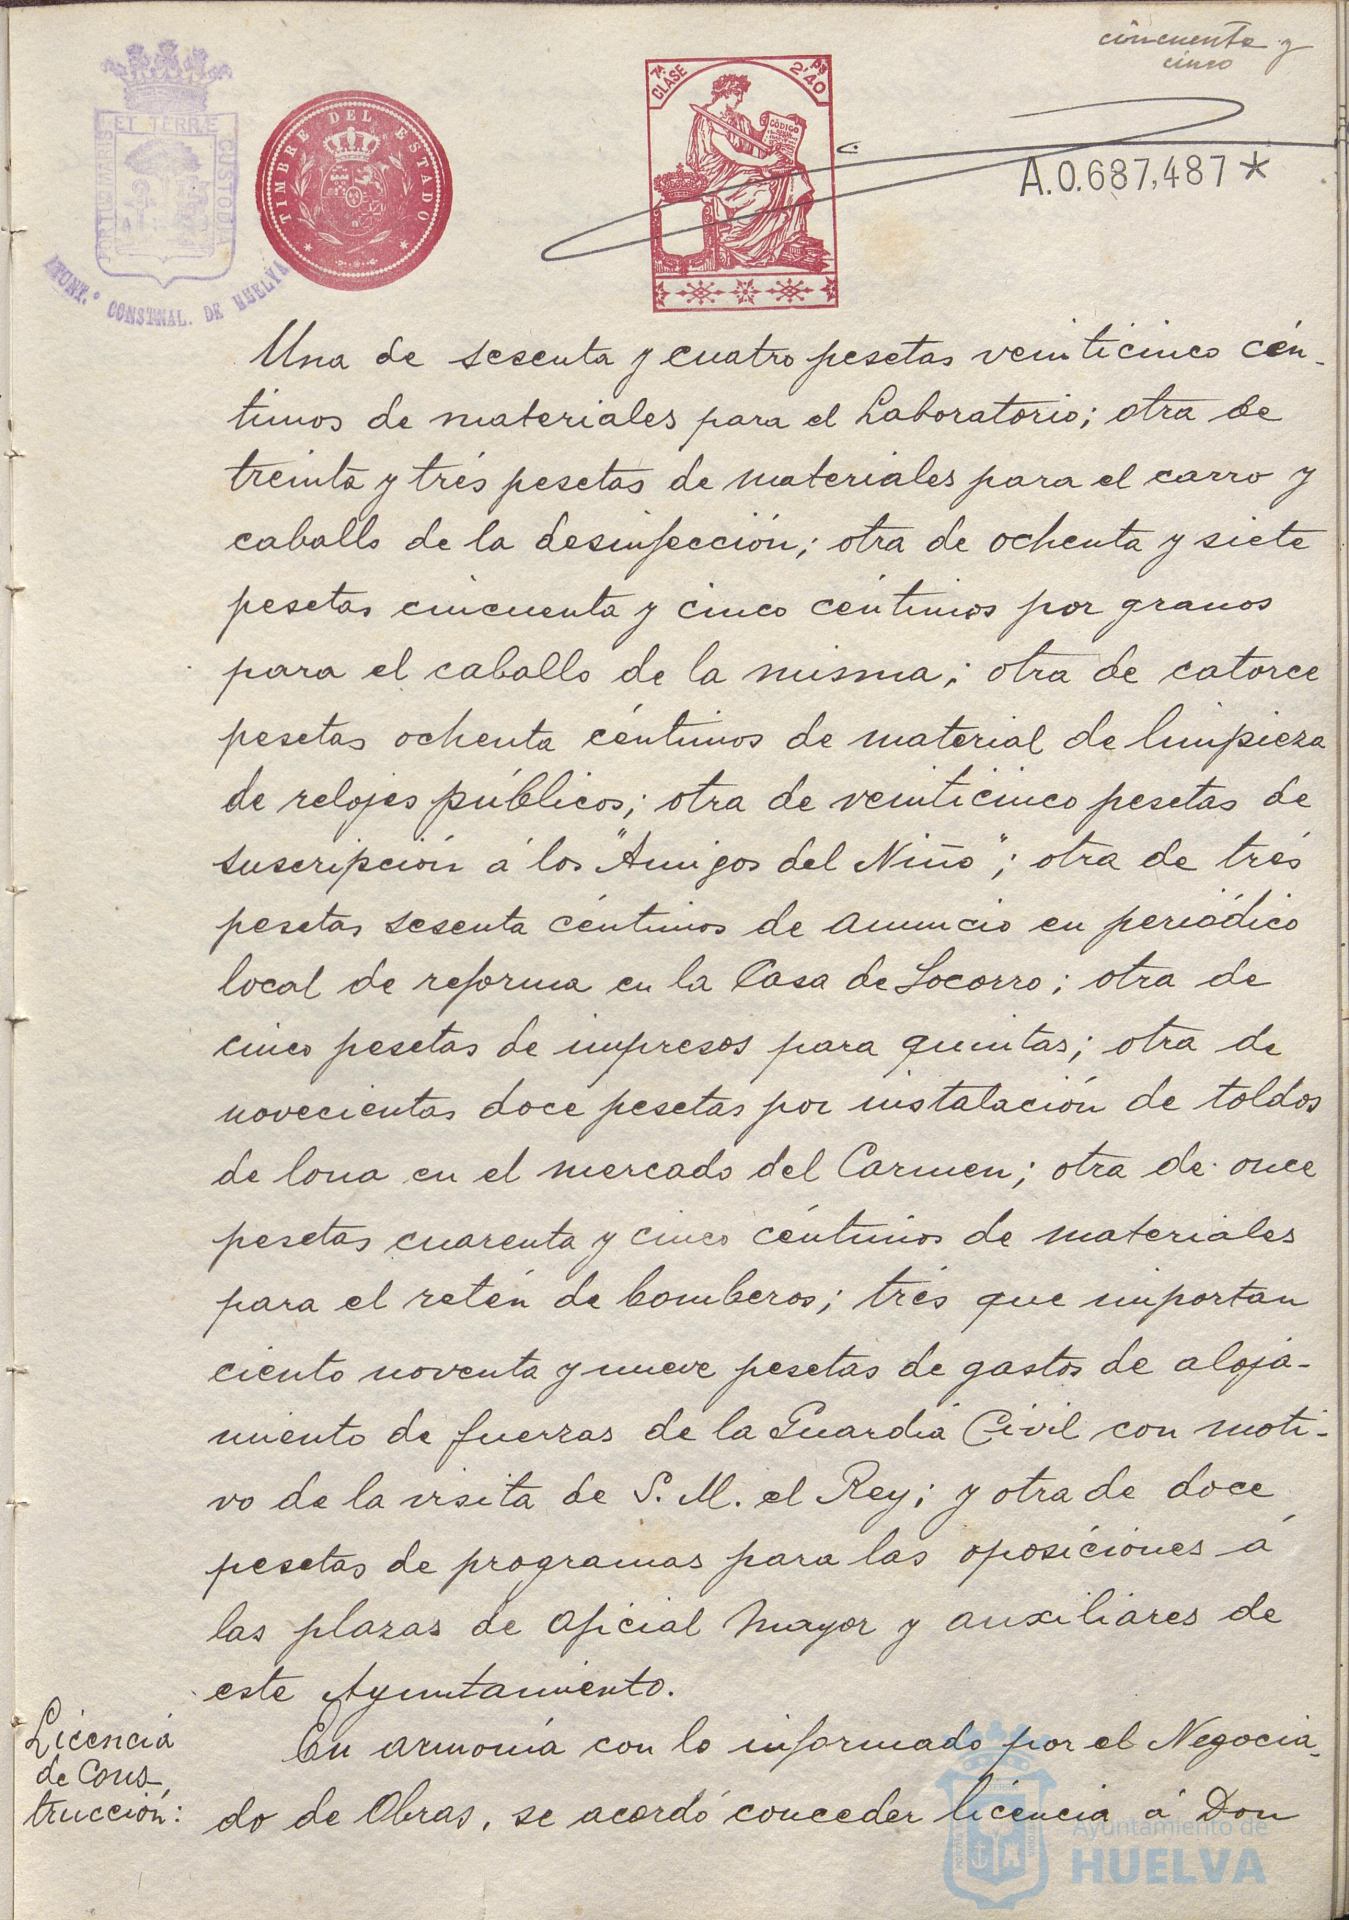 cincuenta y
cinco
PORTUS MARIS ET TERRÆ CUSTODIA
AYUNT.º CONSTNAL. DE HUELVA
TIMBRE DEL ESTADO
7ª CLASE
2'40 PS
CÓDIGO
A.0.687,487*
Una de sesenta y cuatro pesetas veinticinco cén-
timos de materiales para el Laboratorio; otra de
treinta y trés pesetas de materiales para el carro y
caballo de la desinfección; otra de ochenta y siete
pesetas cincuenta y cinco céntimos por granos
para el caballo de la misma; otra de catorce
pesetas ochenta céntimos de material de limpieza
de relojes públicos; otra de veinticinco pesetas de
suscripción á los "Amigos del Niño"; otra de trés
pesetas sesenta céntimos de anuncio en periódico
local de reforma en la Casa de Socorro; otra de
cinco pesetas de impresos para quintas; otra de
novecientas doce pesetas por instalación de toldos
de lona en el mercado del Carmen; otra de once
pesetas cuarenta y cinco céntimos de materiales
para el retén de bomberos; trés que importan
ciento noventa y nueve pesetas de gastos de aloja-
miento de fuerzas de la Guardia Civil con moti-
vo de la visita de S. M. el Rey; y otra de doce
pesetas de programas para las oposiciones á
las plazas de Oficial Mayor y auxiliares de
este Ayuntamiento.
Licencia
de Cons-
trucción:
En armonía con lo informado por el Negocia-
do de Obras, se acordó conceder licencia á Don
Ayuntamiento de
HUELVA